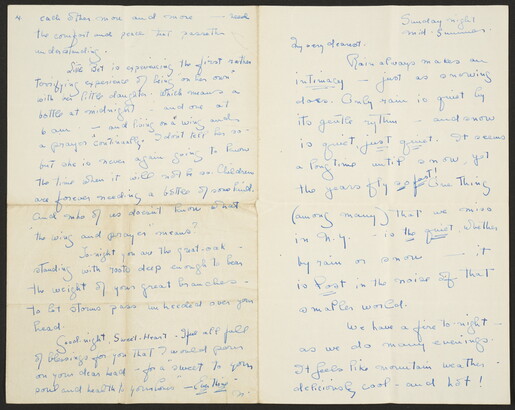 Sunday night
mid-Summer.
My very dearest.
Rain always makes an
intimacy — just as snowing
does. Only rain is quiet by
its gentle rythm — and snow
is quiet just quiet. It seems
a long time until snow. yet
the years fly so fast! One thing
(among many) that we miss
in N.Y. — is the quiet whether
by rain or snow — it
is lost in the noise of that
smaller world.
We have a fire to-night —
as we do many evenings.
It feels like mountain weather
deliciously cool - and hot!
each other more and more — seek
the comfort and peace that passeth
understanding.
Bet is experiencing the first rather
terrifying experience of being "on her own"
with her little daughter. which means a
bottle at midnight — and one at
6 a.m. — and living "on a wing and
a prayer" continually. I don't tell her so -
but she is never again going to know
the time when it will not be so. Children
are forever needing a bottle of some kind.
And who of us doesn't know what
"the wing and prayer" means?
To-night you are the great-oak -
standing with roots deep enough to bear
the weight of your great branches -
to let storms pass unheeded over your
head.
Goodnight, Sweet-Heart. I feel all full
of blessings for you that I would pour
on your dear head - for a "sweet to your
soul and health to your bones" —